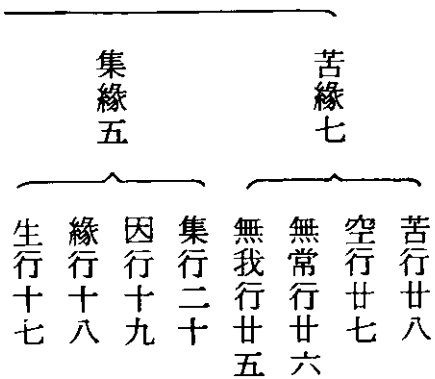 苦緣七
苦行廿八
空行廿七
無常行廿六
無我行廿五
集緣五
集行二十
因行十九
緣行十八
生行十七